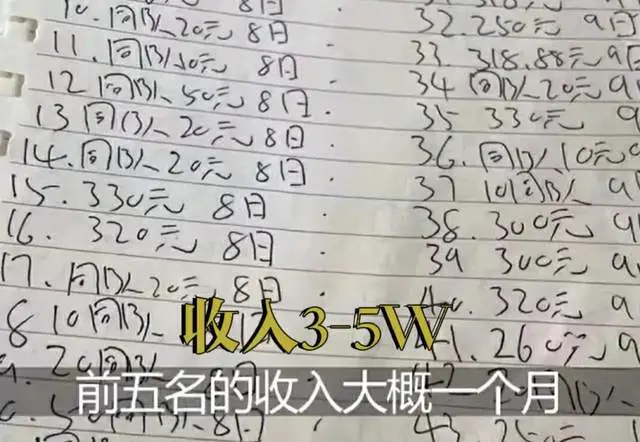 10. 同队 20元 8日
11. 同队 10元 8日
12 同队 50元 8日
13 同队 20元 8日
14. 同队 20元 8日
15. 330元 8日
16. 320元 8日
17. 同队 20元, 8日
8 10同队 8日
20同队
32. 250元 9日
33. 318.88元 9日
34 同队 20元 9
35 330元 9
36. 同队 10元 9
37 10同队 9
38. 300元 9
39 300元 9
40. 320元 9
41. 260元 9
43. 250元
收入3-5W
前五名的收入大概一个月